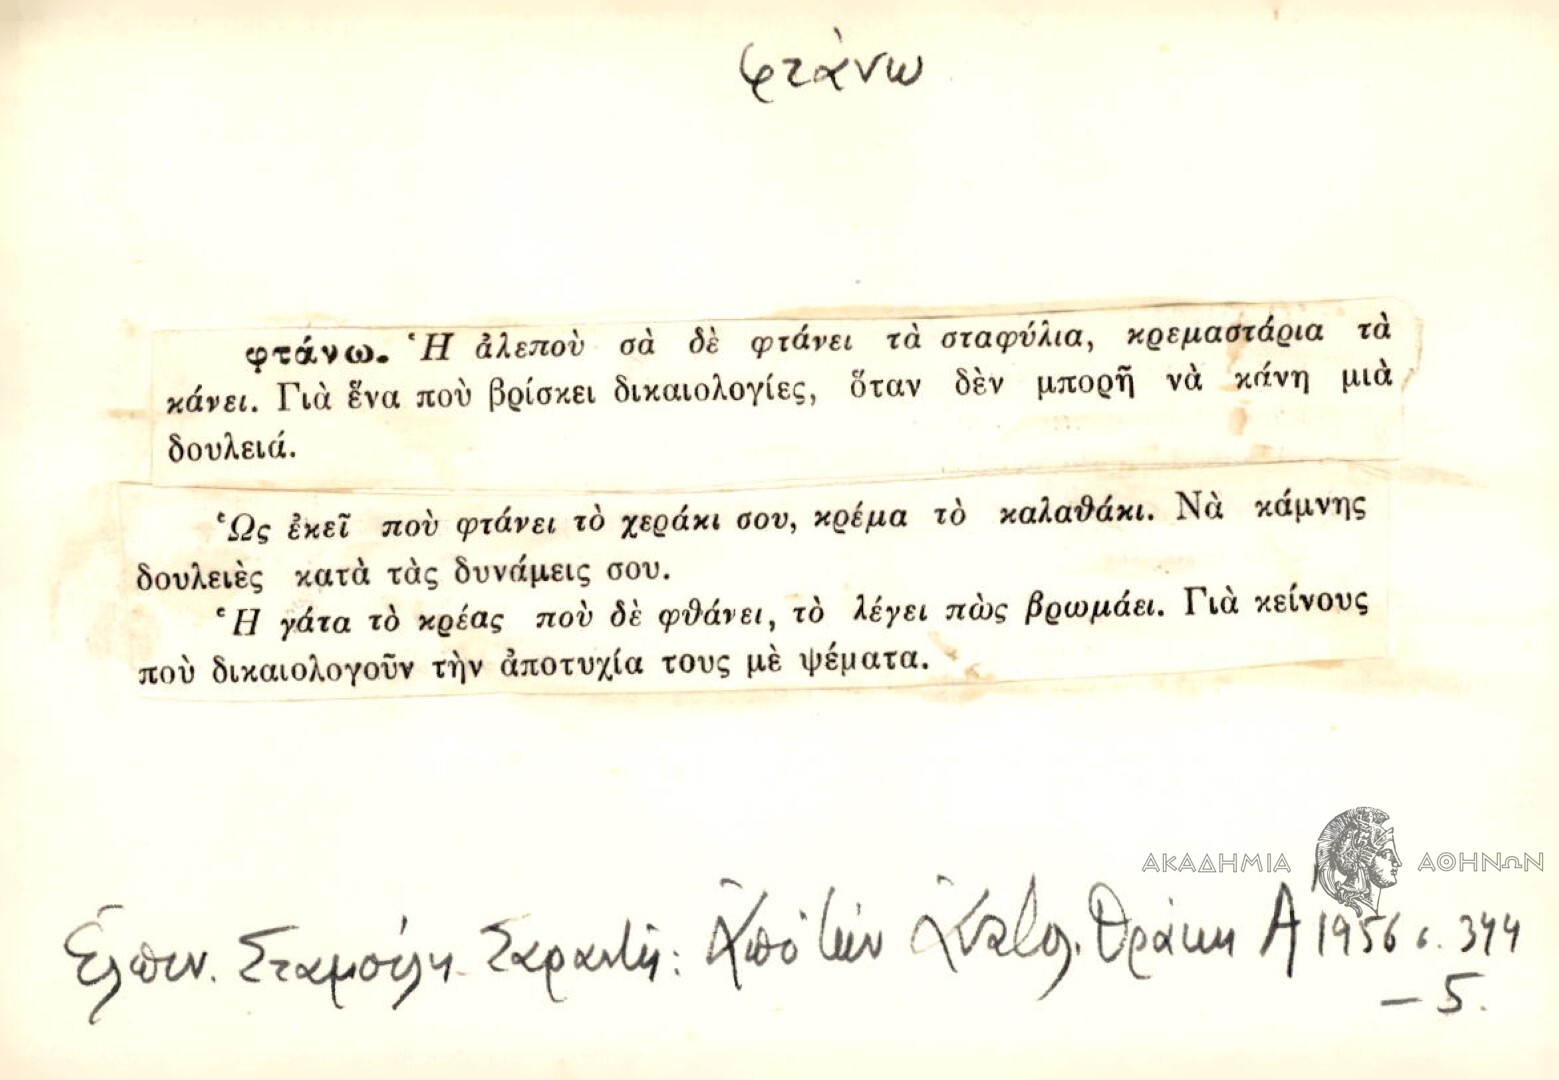 φτάνω
φτάνω. Ἡ ἀλεποὺ σὰ δὲ φτάνει τὰ σταφύλια, κρεμαστάρια τὰ
κάνει. Γιὰ ἕνα ποὺ βρίσκει δικαιολογίες, ὅταν δὲν μπορῆ νὰ κάνη μιὰ
δουλειά.
Ὡς ἐκεῖ ποὺ φτάνει τὸ χεράκι σου, κρέμα τὸ καλαθάκι. Νὰ κάμνης
δουλειὲς κατὰ τὰς δυνάμεις σου.
Ἡ γάτα τὸ κρέας ποὺ δὲ φθάνει, τὸ λέγει πὼς βρωμάει. Γιὰ κείνους
ποὺ δικαιολογοῦν τὴν ἀποτυχία τους μὲ ψέματα.
ΑΚΑΔΗΜΙΑ ΑΘΗΝΩΝ
Ἐλπιν. Σταμούλη Σαραντῆ: Ἀπὸ τὴν Ἀνατολ. Θράκη Α' 1956 σ. 344
– 5.